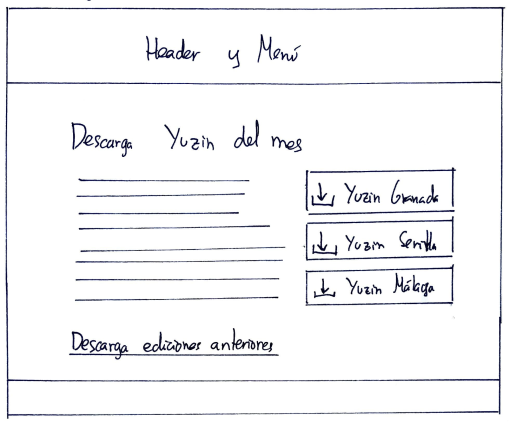 Header y Menú
Descarga Yuzin del mes
Yuzin Granada
Yuzin Sevilla
Yuzin Málaga
Descarga ediciones anteriores